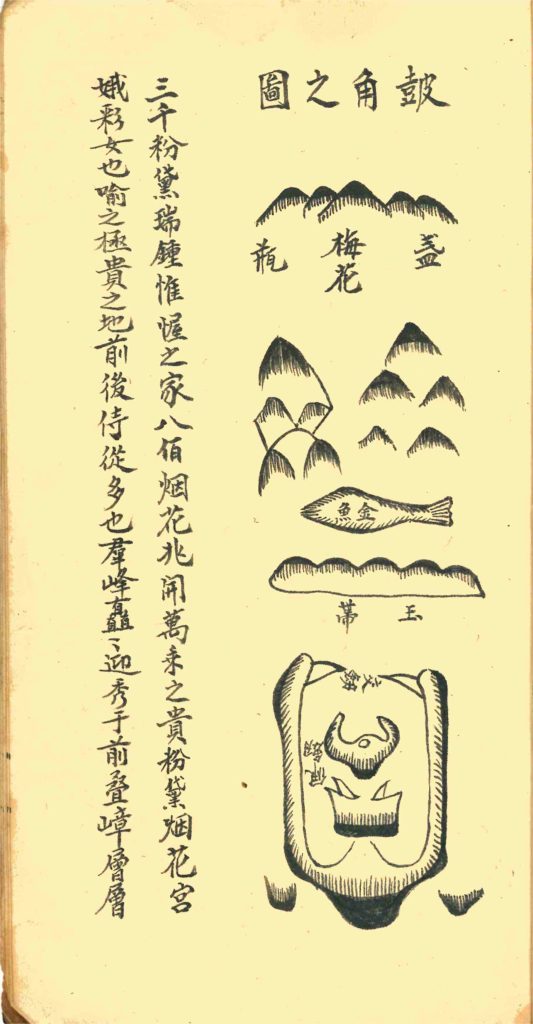 皷角之圖
盞
梅花
瓶
金魚
玉帶
三千粉黛瑞鍾惟幄之家八佰烟花兆開萬乘之貴粉黛烟花宮
娥彩女也喻之極貴之地前後侍從多也羣峰矗〻迎秀于前叠嶂層層